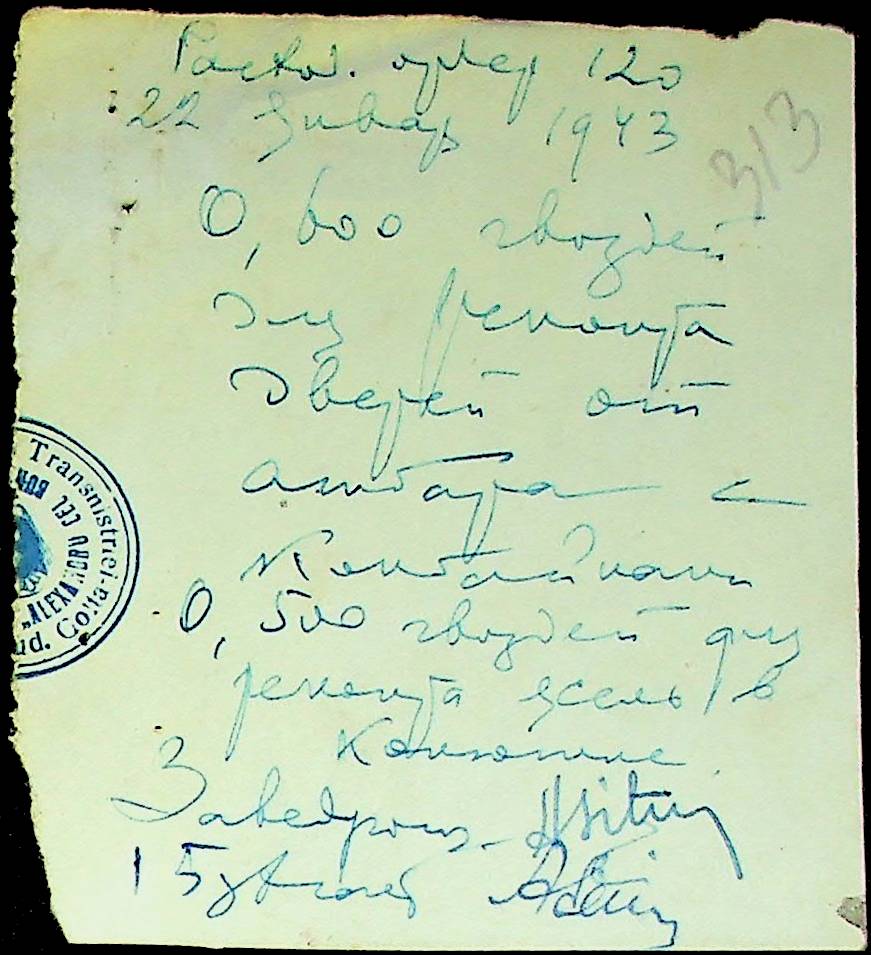 Расход. ордер 120
22 Январ 1943
313
0,600 гвоздей
для ремонта
дверей от
амбара с
0,500 гвоздей для
ремонта ясель в
Конюшне
Завед
Transnistriei
ALEXANDRU CEL BUN
Jud. Golta